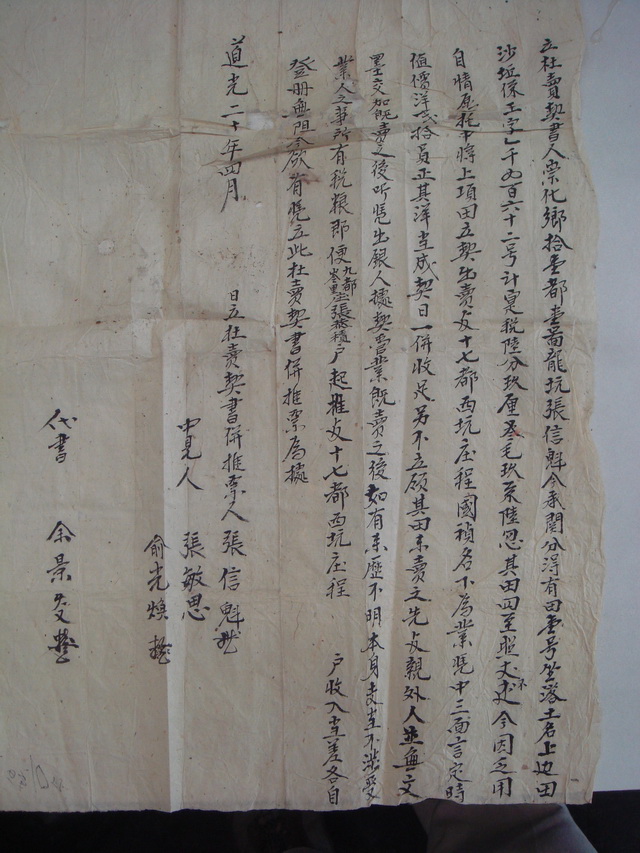 立杜賣契書人崇化鄉拾壹都壹啚龍坑張信魁今承鬮分得有田壹号坐落土名上边田
沙坵係王字乙千九百六十二号計寔稅陸分玖厘叁毛玖系陸忽其田四至照丈不述今因乏用
自情愿托中將上項田立契出賣与十七都西坑庄程國禎名下為業凭中三面言定時
值價洋弍拾員正其洋當成契日一併收足另不立領其田未賣之先与親外人並無文
墨交加既賣之後听凭出銀人據契管業既賣之後如有來歷不明本身支當不涉受
業人之事所有稅粮即便九都 張 户起推与十七都西坑庄程 户收入當差各自
登册無阻今欲有凭立此杜賣契書併推票為據
道光二十年四月 日立杜賣契書併推票人張信魁
中見人 張敏思
俞光煥
代書 余景